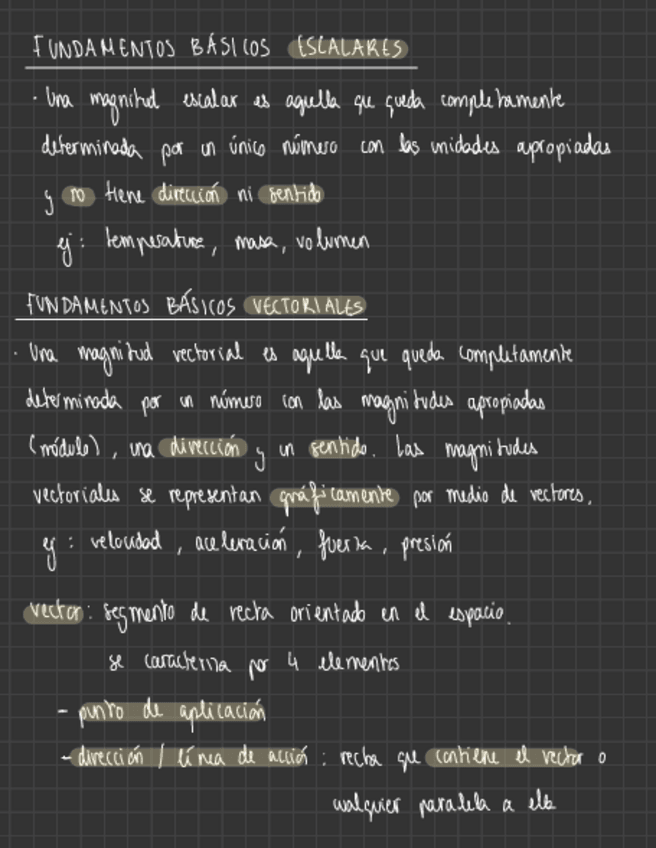 FUNDAMENTOS BÁSICOS ESCALARES
· Una magnitud escalar es aquella que queda completamente
determinada por un único número con las unidades apropiadas
y no tiene dirección ni sentido
ej: temperatura, masa, volumen
FUNDAMENTOS BÁSICOS VECTORIALES
· Una magnitud vectorial es aquella que queda completamente
determinada por un número con las magnitudes apropiadas
(módulo), una dirección y un sentido. Las magnitudes
vectoriales se representan gráficamente por medio de vectores.
ej: velocidad, aceleración, fuerza, presión
vector: segmento de recta orientado en el espacio.
se caracteriza por 4 elementos
- punto de aplicación
- dirección / línea de acción: recta que contiene el vector o
cualquier paralela a ella